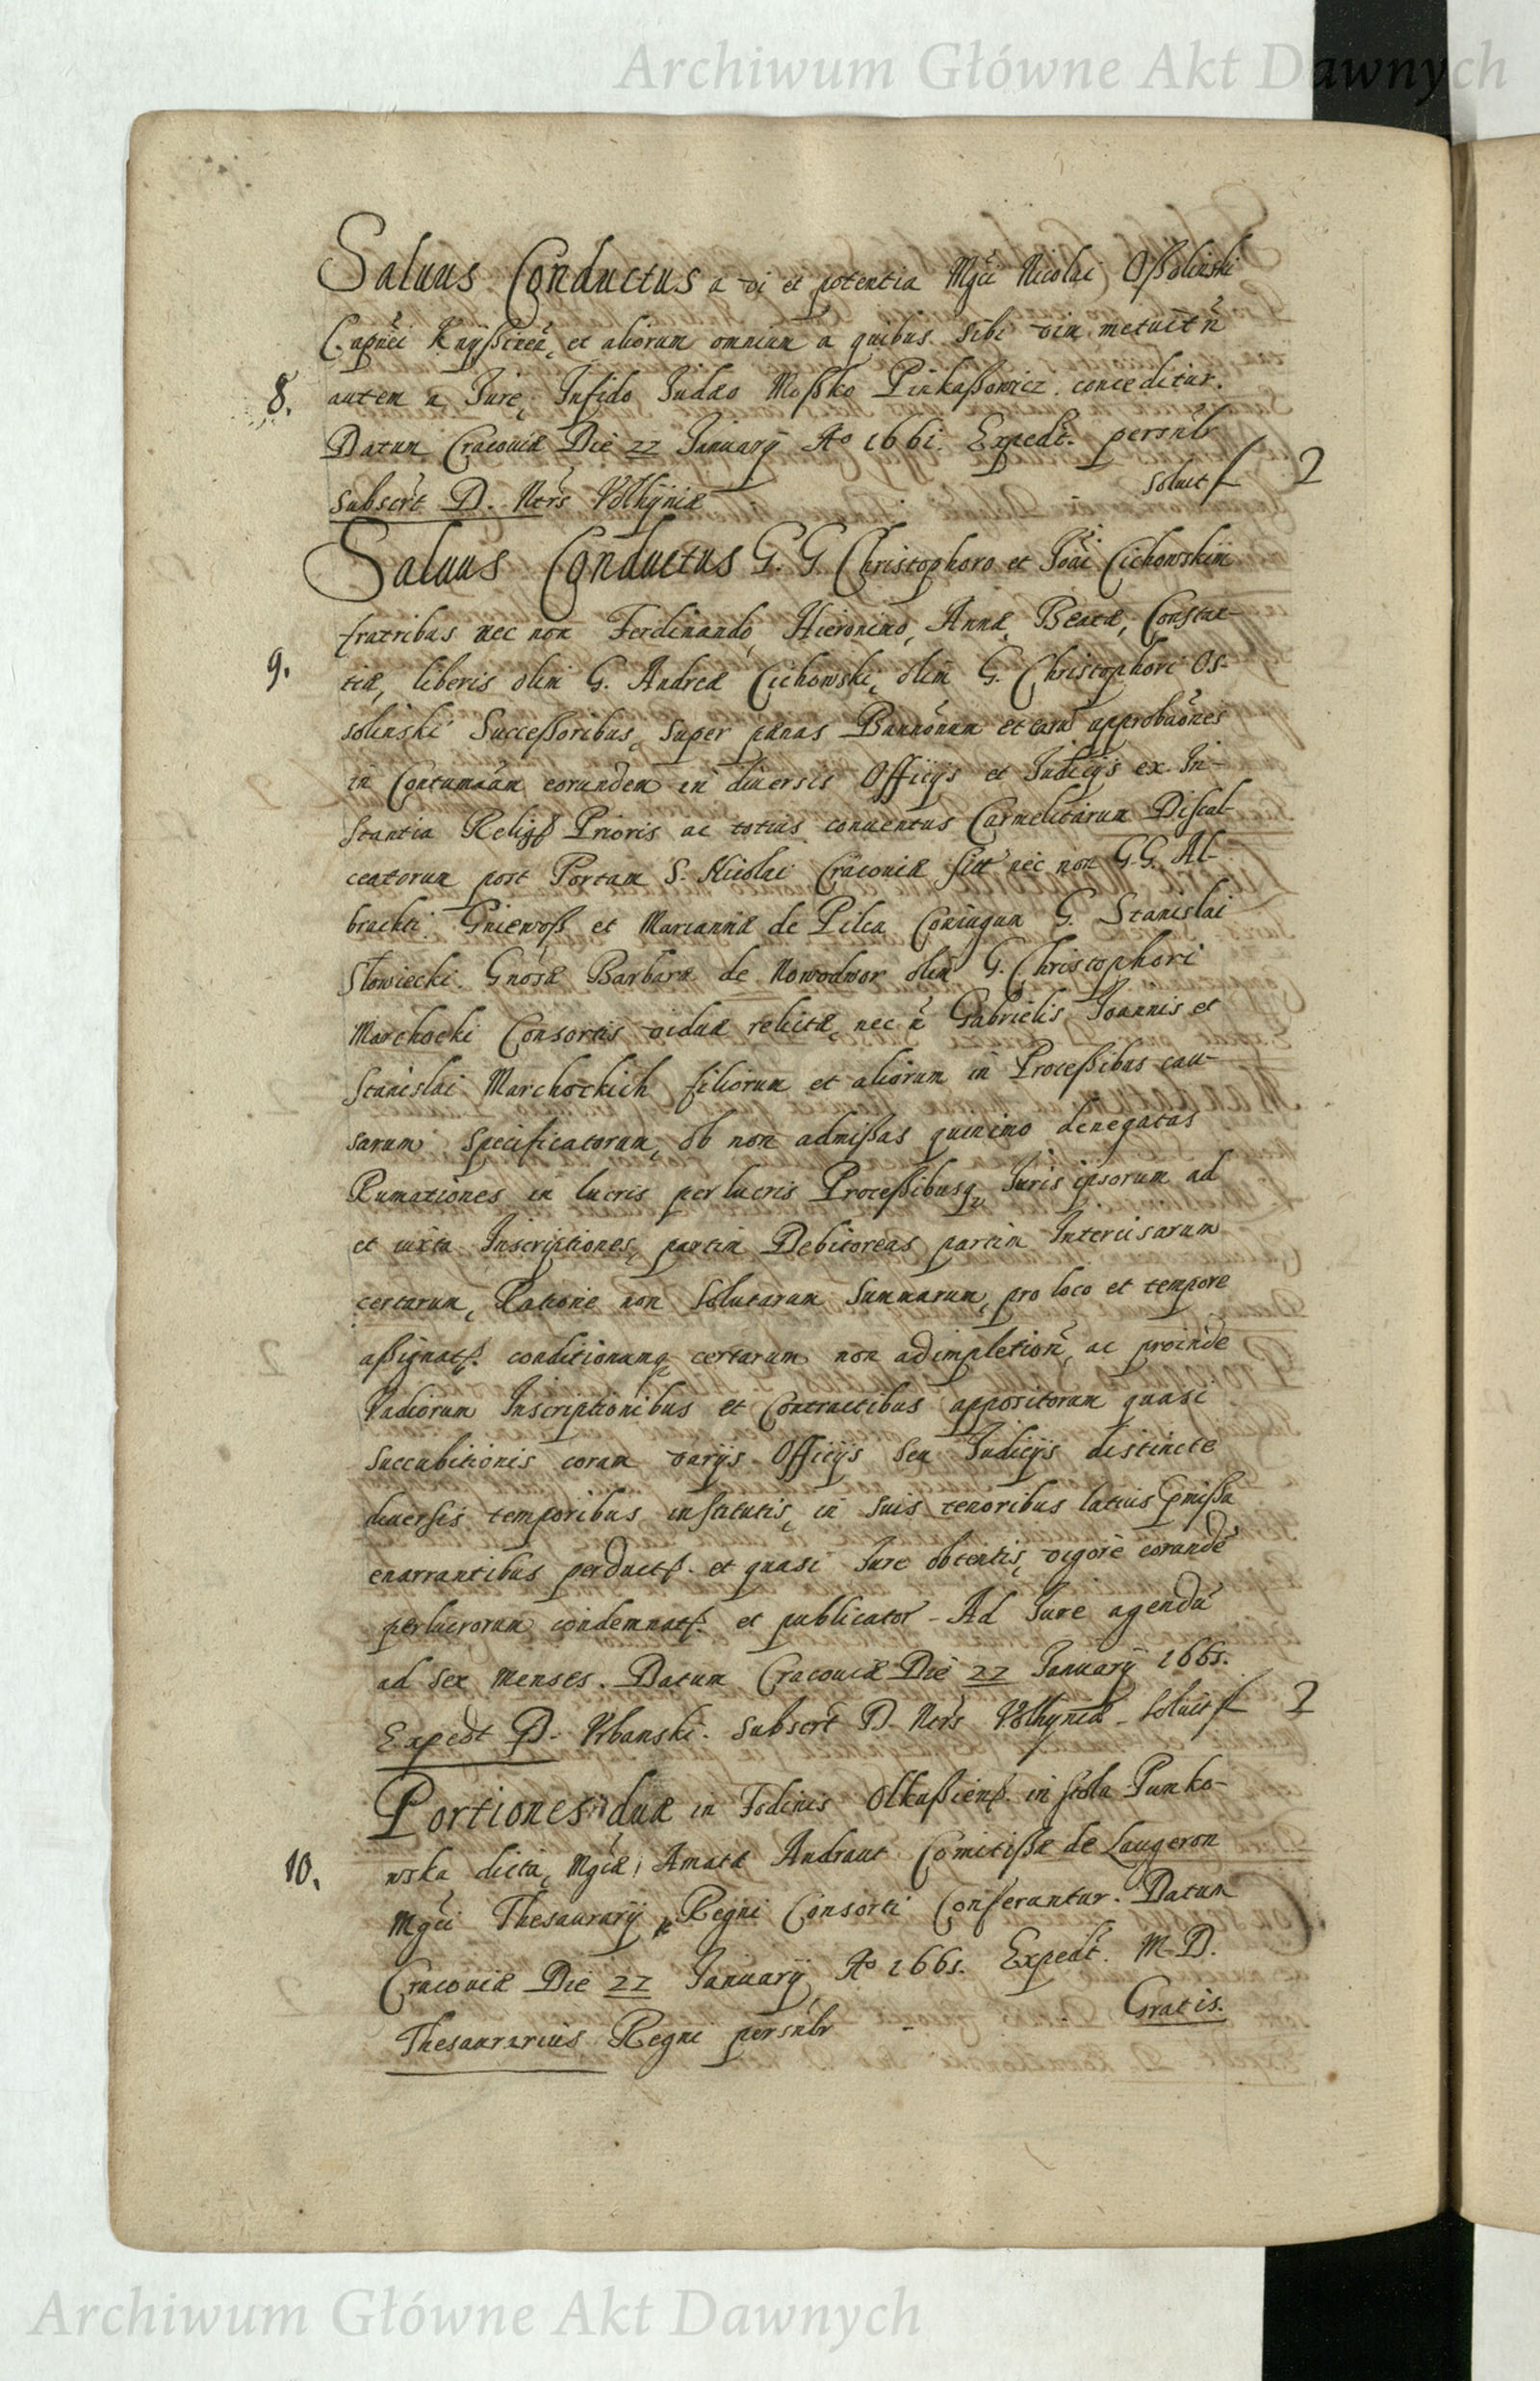 Archiwum Główne Akt Dawnych
Saluus Conductus a vi et potentia Mgci Nicolai Oßolinski
Capnei Knyßinen, et aliorum omnium a quibus sibi vim metuit ñ
8. autem a Jure, Infido Judæo Moßko Pinkaßowicz conceditur.
Datum Cracoviæ Die 22 January Ao 1661. Expedt. persnlr
subscrt D. Ners Volhyniæ soluit f 2
Saluus Conductus G. G. Christophoro et Joãi Cichowskim
fratribus nec non Ferdinando, Hieronimo, Annæ, Beatæ, Constan-
9. tiæ, liberis olim G. Andreæ Cichowski, olim G. Christophori Os-
solinski Succeßoribus, super pænas Bannõnum et earũ approbaõnes
in Contumãam eorundem in diuersis Officijs et Iudicijs ex In-
stantia Religß Prioris ac totius conuentus Carmelitarum Discal-
ceatorum post Portam S. Nicolai Cracoviæ sitt nec non G. G. Al-
brachti Gniewoß et Mariannæ de Pilca Coniugum G. Stanislai
Słowiecki. Gnosæ Barbaræ de Nowodwor olim G. Christophori
Marchocki Consortis viduæ relictæ, nec ñ Gabrielis Joannis et
Stanislai Marchockich filiorum et aliorum in Proceßibus cau-
sarum specificatorum, ob non admißas quinimo denegatas
Rumationes in lucris perlucris Proceßibusq Juris ipsorum ad
et iuxta Inscriptiones, partim Debitoreas partim Intercisarum
certarum, Ratione non solutarum summarum, pro loco et tempore
aßignatß. conditionumq certarum non adimpletion, ac proinde
Vadiorum Inscriptionibus et Contractibus appositorum quasi
succubitionis coram varijs Officijs seu Judicijs distincte
diuersis temporibus institutis, in suis tenoribus latius pmißa
enarrantibus perductß. et quasi Jure obtentis, vigore eorundẽ
perlucrorum condemnatß. et publicator - Ad Jure agendũ
ad sex menses. Datum Cracoviæ Die 22 January 1661.
Expedt D. Vrbanski. subscrt D. Ners Volhyniæ - soluit f 2
Portiones duæ in Fodinis Olkußienß. in stola Punko-
10. wska dicta, Mgcæ Amatæ Andraut Comitißæ de Laugeron
Mgci Thesaurarij Regni Consorti Conferuntur. Datum
Cracoviæ Die 22 January Ao 1661. Expedt. M. D.
Thesaurarius Regni persnlr - Gratis.
Archiwum Główne Akt Dawnych